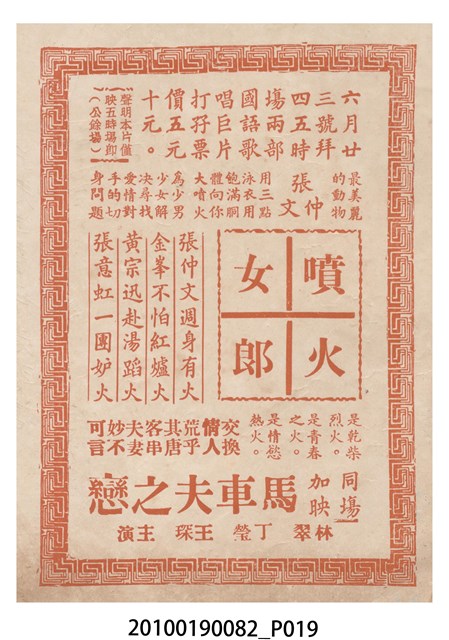 六月廿
三號拜
四五時
塲兩部
國語歌
唱巨片
打孖票
價五元
十元。
聲明本片僅
映五時塲即
(公餘塲)
最美麗
的動物
張仲
文
用三點
泳衣用
飽滿胴
體向你
大噴火
為少男
少女解
決尋找
愛情對
手的切
身問題
噴火
女郎
張仲文週身有火
金峯不怕紅爐火
黃宗迅赴湯蹈火
張意虹一團妒火
是乾柴
烈火。
是青春
之火。
是情慾
熱火。
交換
情人
荒乎
其唐
客串
夫妻
妙不
可言
同塲
加映
馬車夫之戀
林翠 丁瑩 王琛 主演
20100190082_P019